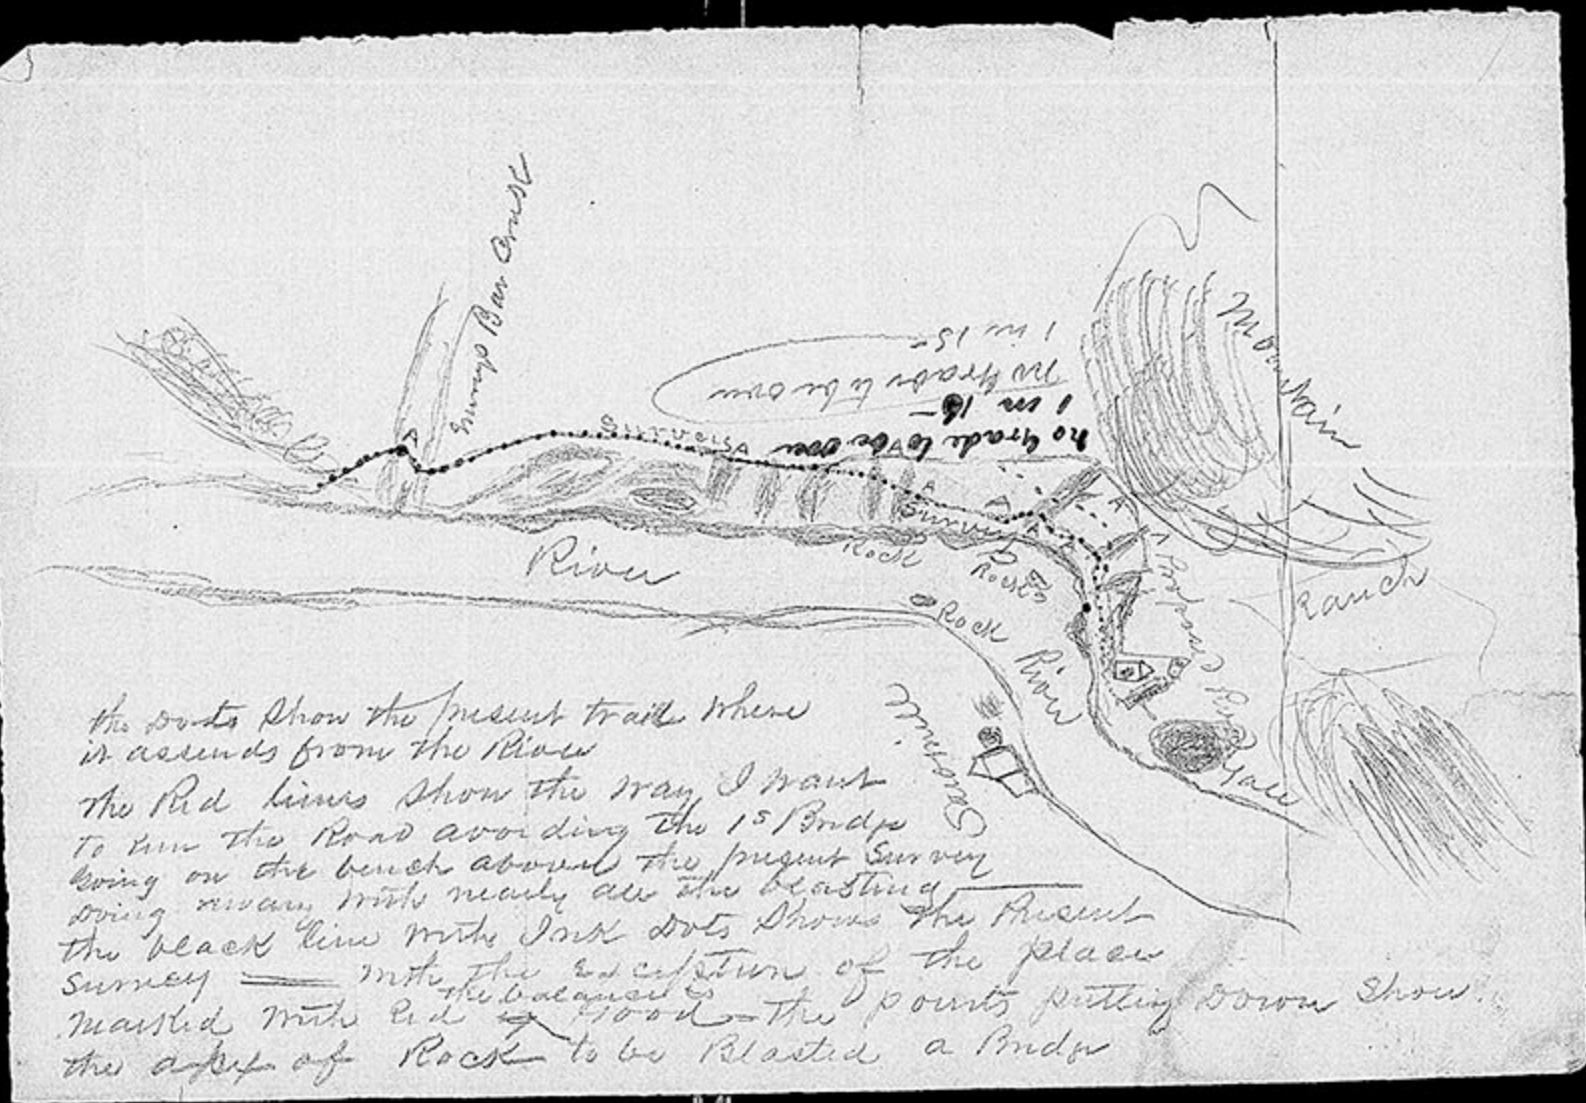 Bar
Mountain
1 in 15
no Grade to be over
1 in 15
no Grade to be over
Survey
A
A
A
A
A
A
Survey
Rock
Rocks
River
Rock
River
Ranch
Sawmill
the Dots Show the present trail where
it assends from the River
the Red lines Show the way I want
to run the Road avoiding the 1s Bridge
going on the bench above the present Survey
Doing away with nearly all the blasting
the black line with Ink Dots Shows the Present
Survey with the exception of the place
marked with Red the balance is good the points putting Down Show
the apex of Rock to be Blasted a Bridge